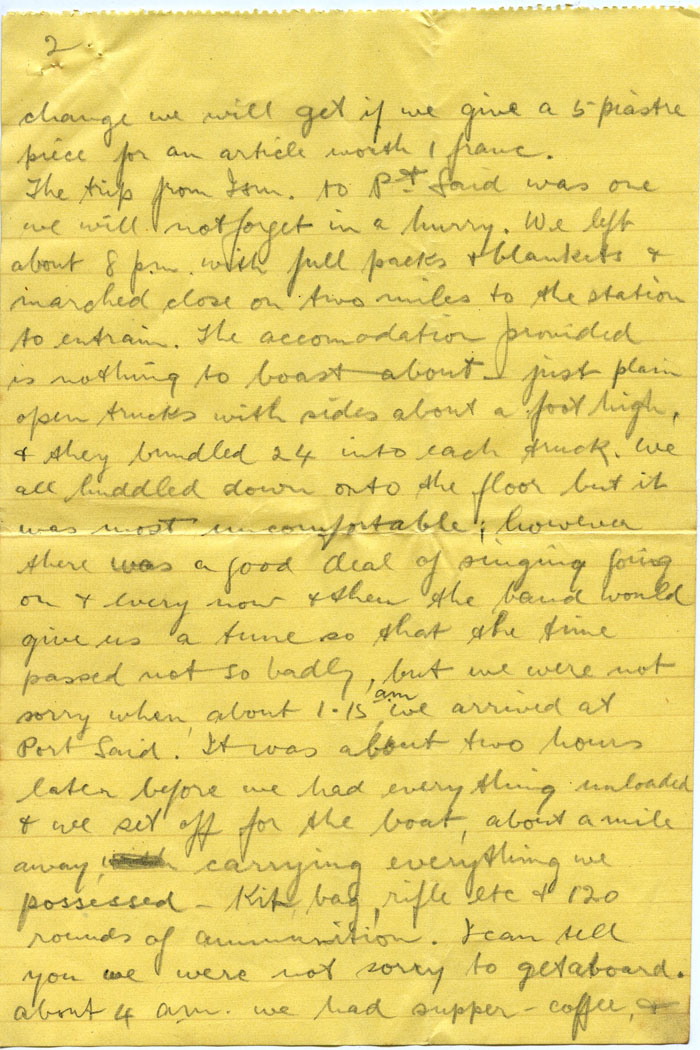 2
change we will get if we give a 5 piastre
piece for an article worth 1 franc.
The trip from Ism. to Pt Said was one
we will not forget in a hurry. We left
about 8 p.m. with full packs & blankets &
marched close on two miles to the station
to entrain. The accomodation provided
is nothing to boast about – just plain
open trucks with sides about a foot high,
& they bundled 24 into each truck. We
all huddled down onto the floor but it
was most uncomfortable; however
there was a good deal of singing going
on & every now & then the band would
give us a tune so that the time
passed not so badly, but we were not
sorry when, about 1.15 am, we arrived at
Port Said. It was about two hours
later before we had everything unloaded
& we set off for the boat, about a mile
away, carrying everything we
possessed – Kit bag, rifle etc & 120
rounds of ammunition. I can tell
you we were not sorry to get aboard.
about 4 am. we had supper – coffee, &